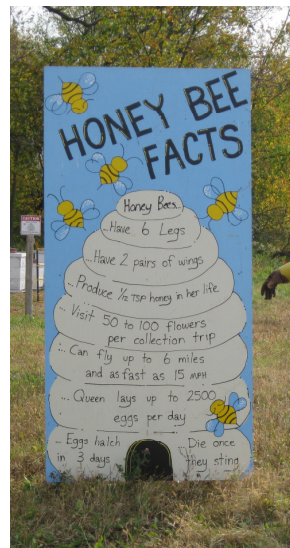 HONEY BEE
FACTS
Honey Bees...
...Have 6 Legs
...Have 2 pairs of wings
...Produce 1/12 TSP honey in her life
... Visit 50 to 100 flowers
per collection trip
... Can fly up to 6 miles
and as fast as 15 MPH
... Queen lays up to 2500
eggs per day
... Eggs hatch
in 3 days
Die once
they sting